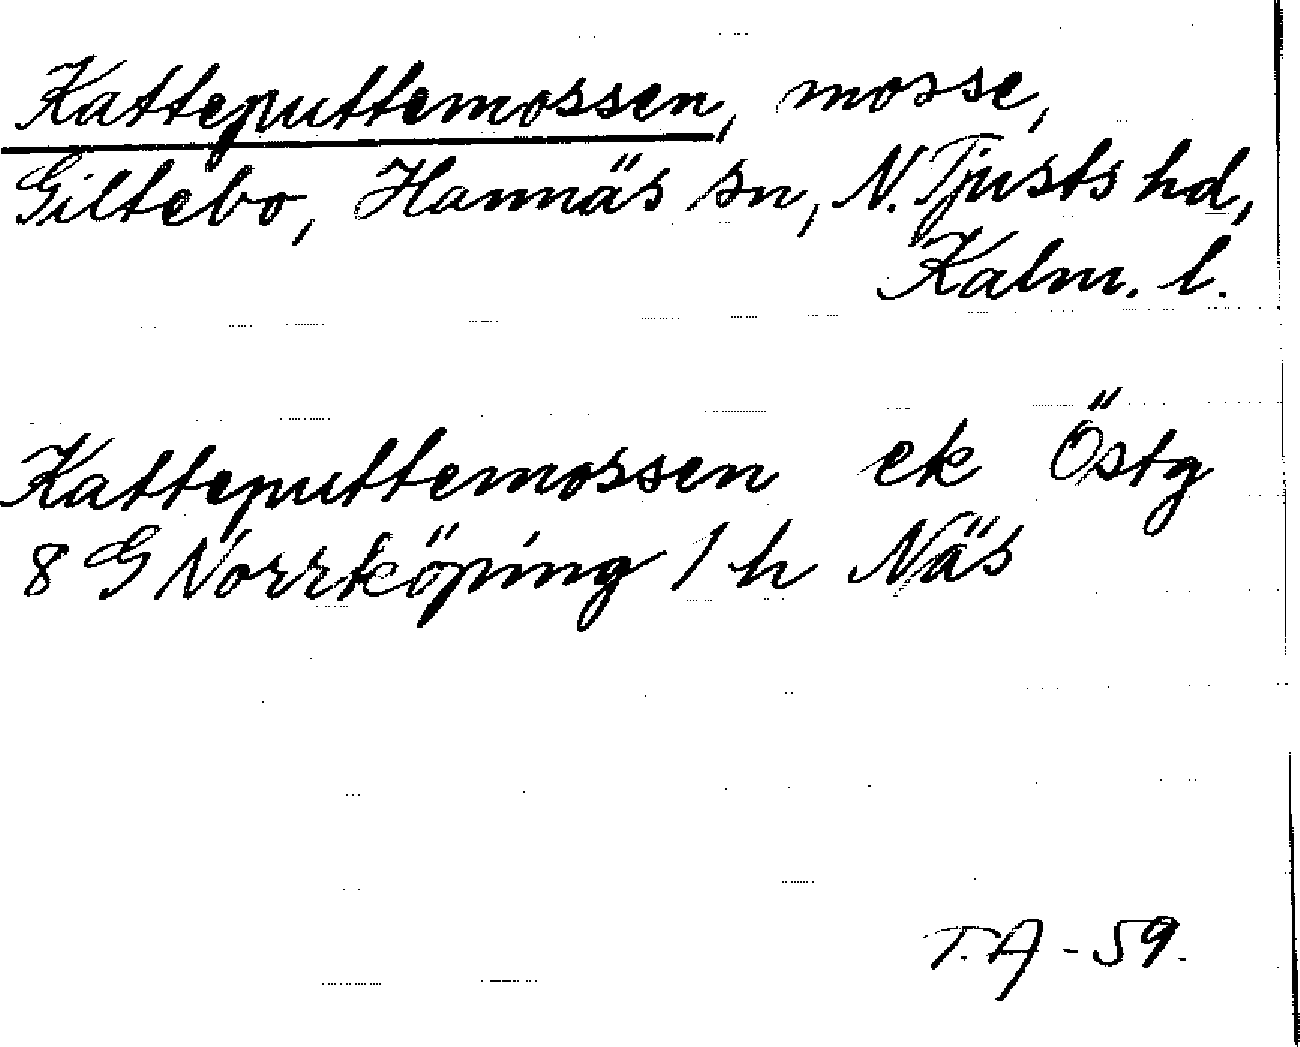 Katteputtemossen, mosse,
Giltebo, Hannäs sn, N. Tjusts hd,
Kalm. l.
Katteputtemossen ek Östg
8 G Norrköping 1 h Näs
T.A - 59.